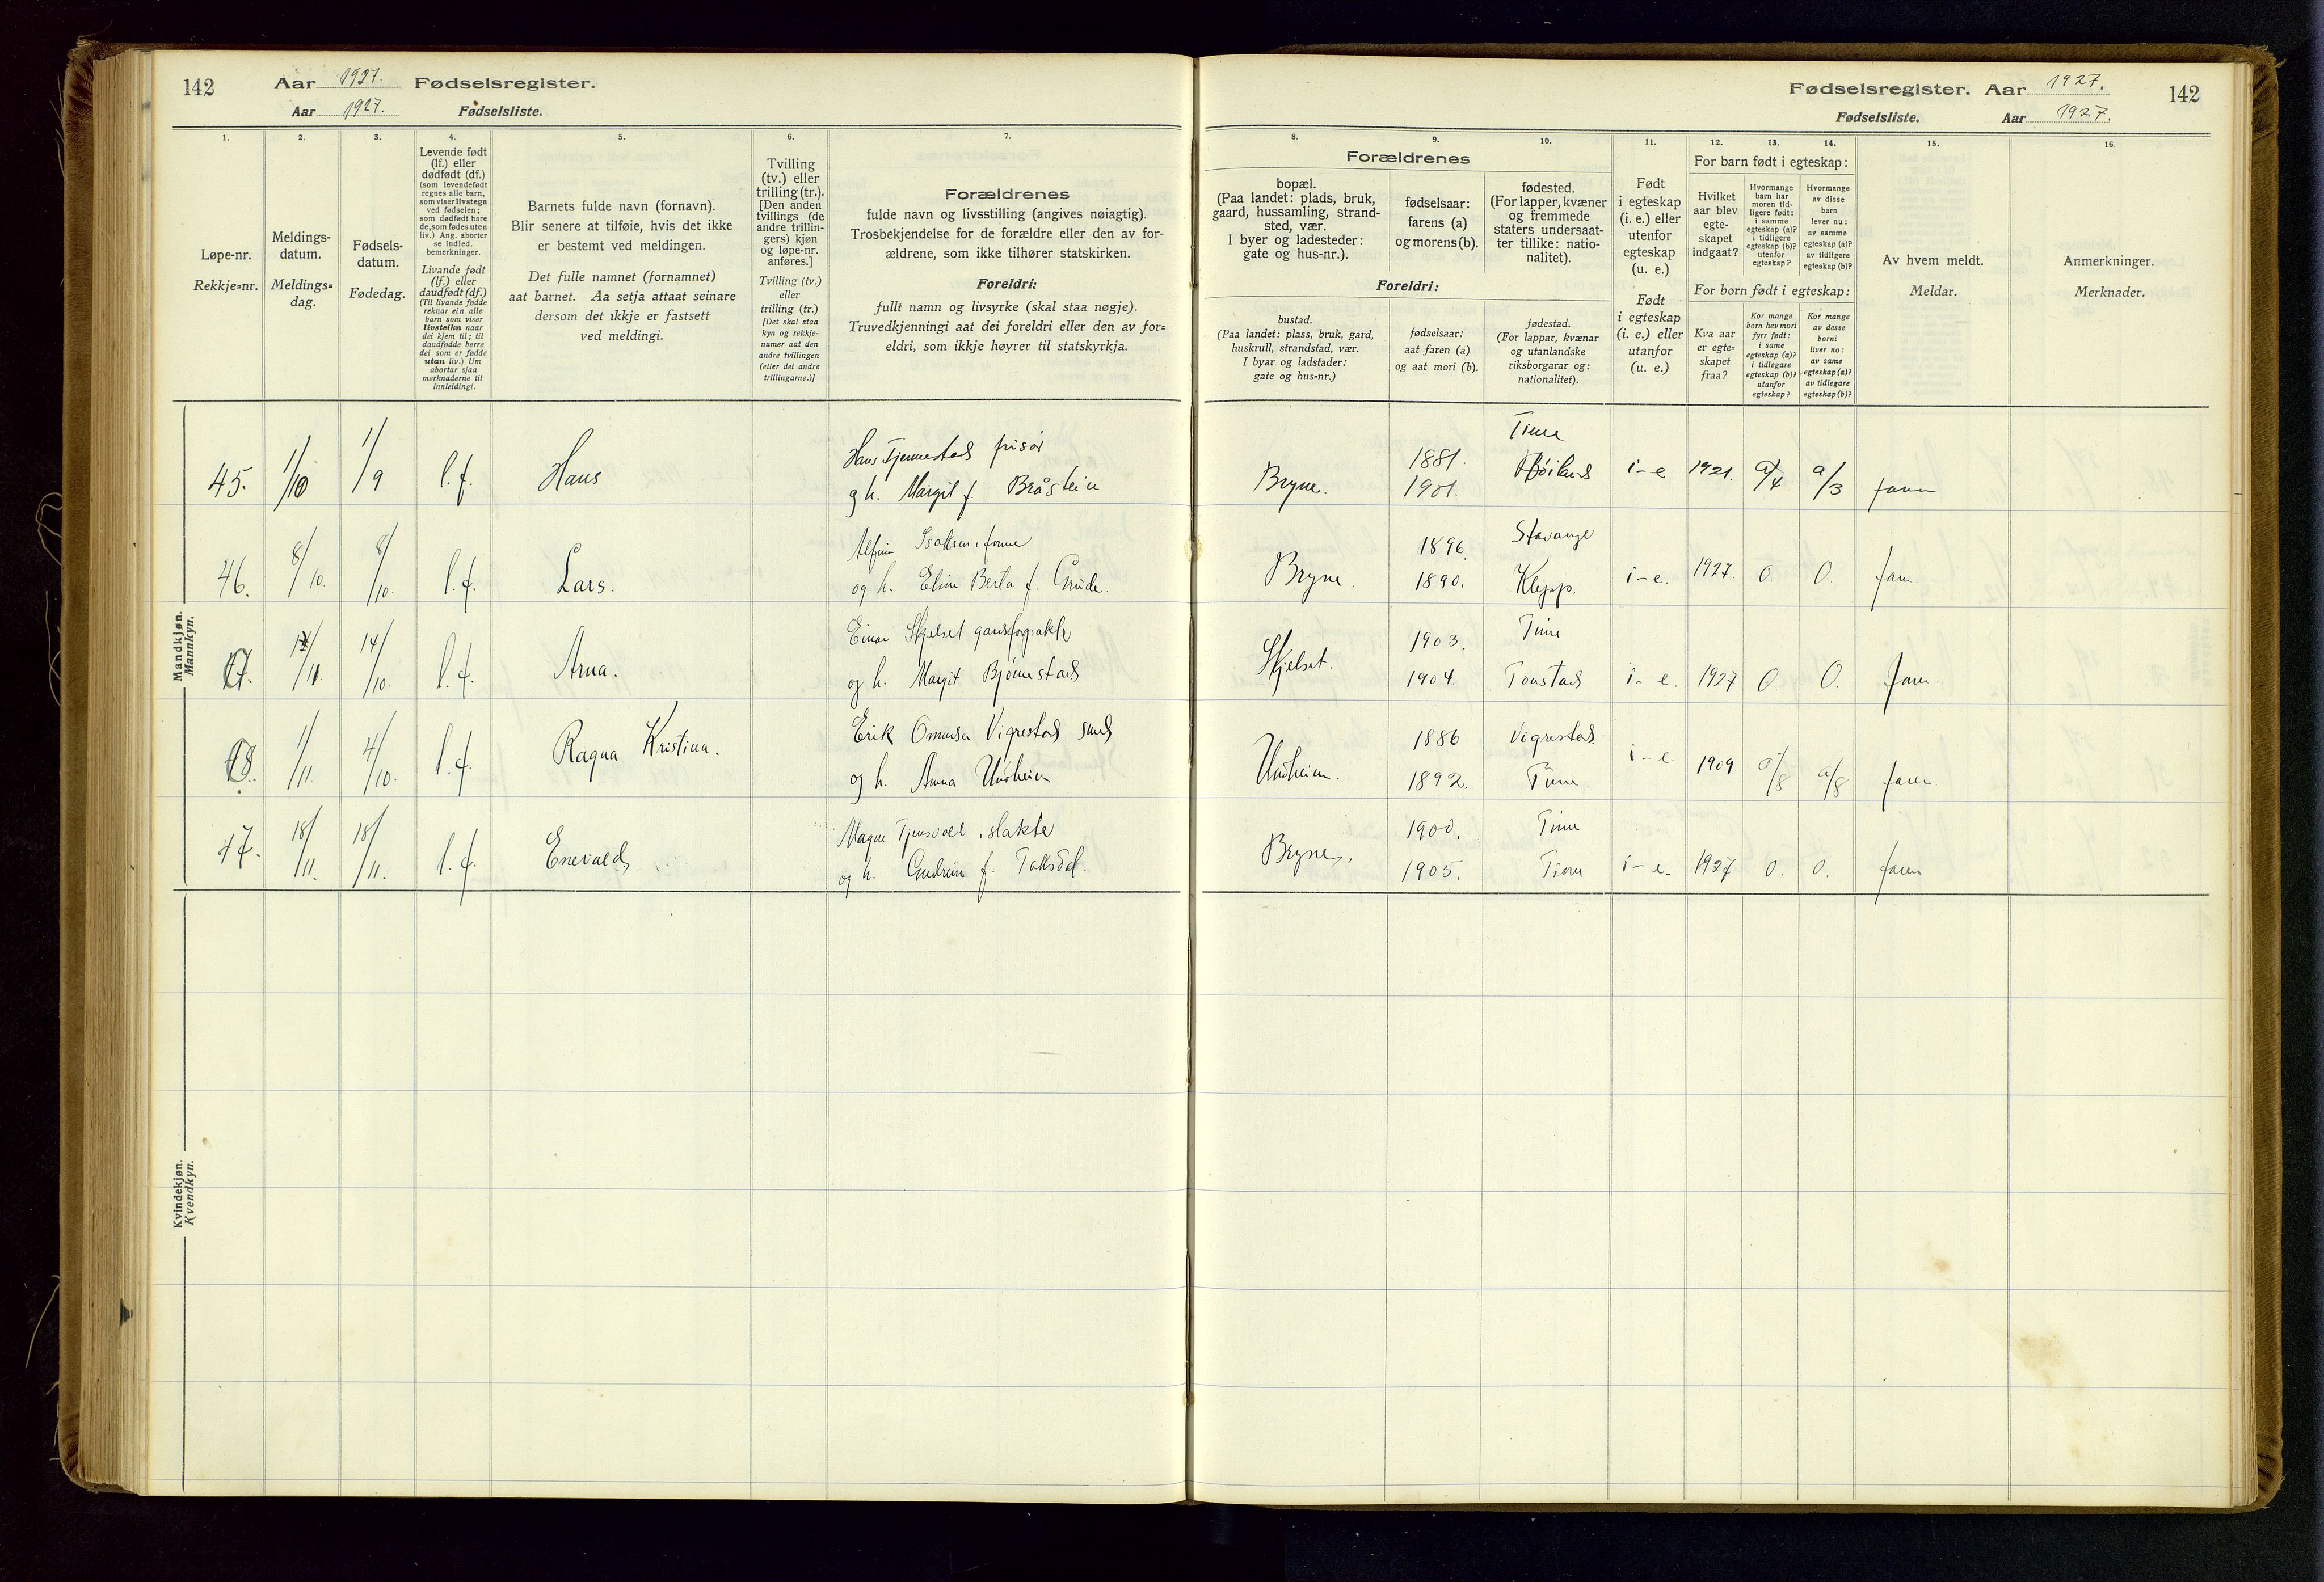 142
Aar 1927. Fødselsregister.
Aar 1927. Fødselsliste.
Fødselsregister. Aar 1927.
Fødselsliste. Aar 1927.
142
1.
Løpe-nr.
Rekkje=nr.
2.
Meldings-
datum.
Meldings=
dag.
3.
Fødsels-
datum.
Fødedag.
4.
Levende født
(lf.) eller
dødfødt (df.)
(som levendefødt
regnes alle barn,
som viser livstegn
ved fødselen;
som dødfødt bare
de, som fødes uten
liv.) Ang. aborter
se indled.
bemerkninger.
Livande født
(lf.) eller
daudfødt (df.)
(Til livande fødde
reknar ein alle
barn som viser
livsteikn naar
dei kjem til; til
daudfødde berre
dei som er fødde
utan liv.) Um
abortar sjaa
merknaderne til
innleidingi.
5.
Barnets fulde navn (fornavn).
Blir senere at tilføie, hvis det ikke
er bestemt ved meldingen.
Det fulle namnet (fornamnet)
aat barnet. Aa setja attaat seinare
dersom det ikkje er fastsett
ved meldingi.
6.
Tvilling
(tv.) eller
trilling (tr.).
[Den anden
tvillings (de
andre trillin-
gers) kjøn
og løpe-nr.
anføres.]
Tvilling (tv.)
eller
trilling (tr.)
[Det skal staa
kyn og rekkje-
numer aat den
andre tvillingen
(eller dei andre
trillingarne.)]
7.
Forældrenes
fulde navn og livsstilling (angives nøiagtig).
Trosbekjendelse for de forældre eller den av for-
ældrene, som ikke tilhører statskirken.
Foreldri:
fullt namn og livsyrke (skal staa nøgje).
Truvedkjenningi aat dei foreldri eller den av for=
eldri, som ikkje høyrer til statskyrkja.
Forældrenes
8.
bopæl.
(Paa landet: plads, bruk,
gaard, hussamling, strand-
sted, vær.
I byer og ladesteder:
gate og hus-nr.).
9.
fødselsaar:
farens (a)
og morens (b).
10.
fødested.
(For lapper, kvæner
og fremmede
staters undersaat-
ter tillike: natio-
nalitet).
Foreldri:
bustad.
(Paa landet: plass, bruk, gard,
huskrull, strandstad, vær.
I byar og ladstader:
gate og hus=nr.)
fødselsaar:
aat faren (a)
og aat mori (b).
fødestad.
(For lappar, kvænar
og utanlandske
riksborgarar og:
nationalitet).
11.
Født
i egteskap
(i. e.) eller
utenfor
egteskap
(u. e.)
Født
i egteskap
(i. e.) eller
utanfor
(u. e.)
12. 13. 14.
For barn født i egteskap:
Hvilket
aar blev
egte-
skapet
indgaat?
Hvormange
barn har
moren tid-
ligere født:
i samme
egteskap (a)?
i tidligere
egteskap (b)?
utenfor
egteskap?
Hvormange
av disse
barn
lever nu:
av samme
egteskap (a)?
av tidligere
egteskap (b)?
For born født i egteskap:
Kva aar
er egte-
skapet
fraa?
Kor mange
born hev mori
fyrr født:
i same
egteskap (a)?
i tidlegare
egteskap (b)?
utanfor
egteskap?
Kor mange
av desse
borni
liver no:
av same
egteskap (a)?
av tidlegare
egteskap (b)?
15.
Av hvem meldt.
Meldar.
16.
Anmerkninger.
Merknader.
Mandkjøn.
Mannkyn.
45. 1/10 1/9 l.f. Hans
Hans Tjemestad frisør
g h. Margit f. Bråstein
Bryne. 1881. 1901. Time i-e 1921. a/4 a/3 faren
46. 8/10. 8/10. l.f. Lars.
Isaksen
og h. Elin Berta f. Grude.
Bryne. 1896. 1890. Stavanger Klepp. i-e. 1927. 0 0. faren
47. 14/10. l.f. Arna.
Einar Skjelset
og h. Margit Bjønnestad
Skjelset. 1903. 1904. Time Tonstad i-e. 1927 0 0. faren
48. 1/11. 4/10. l.f. Ragna Kristina.
Erik Vigrestad smed
og h. Anna Undheim
Undheim. 1886 1892. Vigrestad. Time. i-e. 1909 a/8 a/8 faren.
47. 18/11. 18/11. l.f. Enevald
Magne slakter
og h. Gudrun f. Taksdal.
Bryne. 1900. 1905. Time Time i-e. 1927 0. 0. faren
Kvindekjøn.
Kvendkyn.